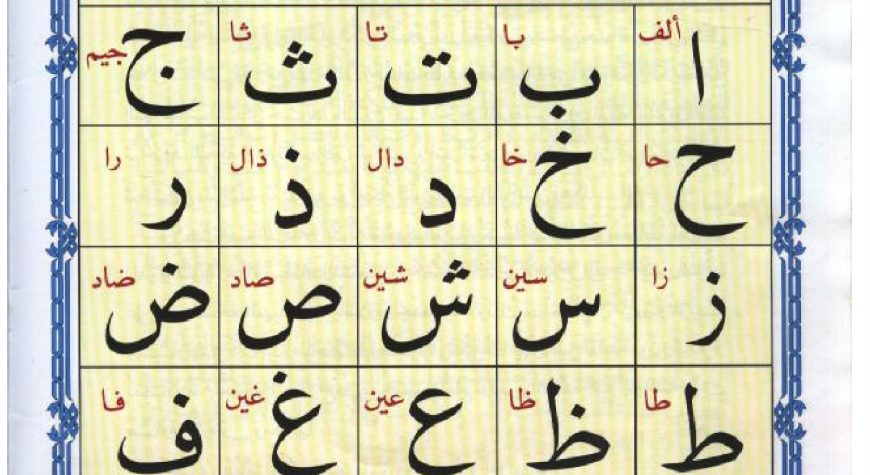 ا ألف ب با ت تا ث ثا ج جيم
ح حا خ خا د دال ذ ذال ر را
ز زا س سين ش شين ص صاد ض ضاد
ط طا ظ ظا ع عين غ غين ف فا